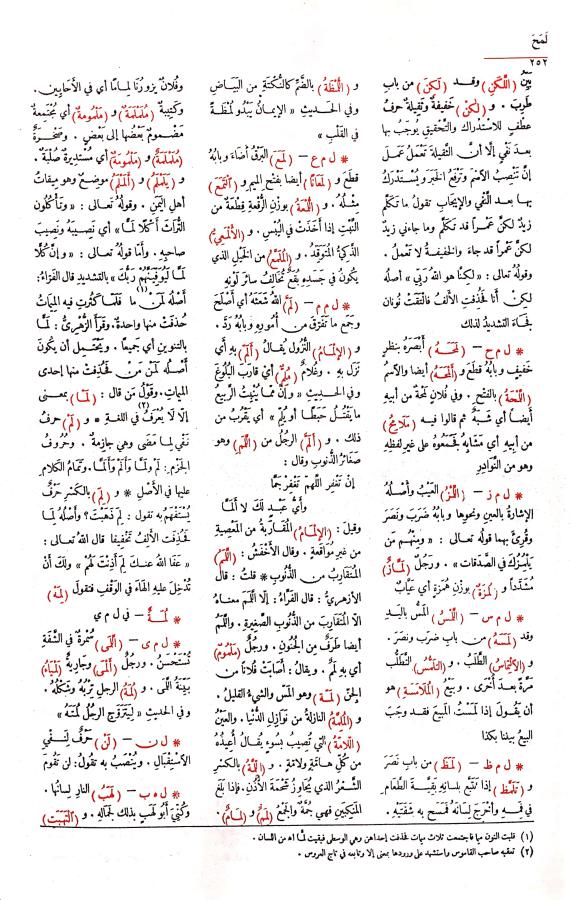 لَمَحَ
٢٥٢
بَيِّنُ (اللَّكَنِ) وقد (لَكِنَ) من باب
طَرِبَ . و (لكِنْ) خفيفةً وثقيلةً حرفُ
عطفٍ للاستدراك والتحقيق يُوجَب بها
بعد نفي إلا أنّ الثقيلة تَعْمَلُ عَمَلَ
إنّ تَنْصِبُ الاسم وتَرفَعُ الخبر ويُسْتَدرَكُ
بها بعد النفي والإيجاب تقول ما تكلّم
زيدٌ لكنّ عمرا قد تكلّم وما جاءني زيدٌ
لكنّ عمرا قد جاء والخفيفة لا تعمل .
وقولُه تعالى : «لكنّا هو الله رَبّي» أصله
لكن أنا فحُذِفت الألفُ فالْتَقَتْ نُونان
فجاء التشديدُ لذلك
* ل م ح – (لَمَحَهُ) أبصَرَه بنظرٍ
خفيف وبابُه قطع و (أَلْمَحَهُ) أيضا والاسم
(اللَّمْحَةُ) بالفتح . وفي فلان لَمْحةٌ من أبيه
أيضا أي شَبَهٌ ثم قالوا فيه (مَلَامِحُ)
من أبيه أي مَشابِهُ فجَمَعوه على غير لفظه
وهو من النّوادِر
* ل م ز – (اللَّمْزُ) العَيْبُ وأصلُه
الإشارة بالعين ونحوها وبابُه ضَرَبَ ونَصَر
وقُرِئَ بهما قوله تعالى : «ومنهم مَن
يَلْمِزُكَ في الصدقات» . ورجلٌ (لَمَّازٌ)
مُشَدّدا و (لُمَزَةٌ) بوزن هُمَزة أي عَيّابٌ
* ل م س – (اللَّمْسُ) المَسُّ باليد
وقد (لَمَسَهُ) من باب ضرب ونصر .
و (الالْتِمَاسُ) الطلبُ . و (التَّلَمُّسُ) التَّطَلُّبُ
مرّةً بعد أخرى . وبَيْعُ (المُلَامَسَةِ) هو
أن يقول إذا لَمَسْتَ المبيعَ فقد وَجَبَ
البيعُ بيننا بكذا
* ل م ظ – (لَمَظَ) من باب نَصَرَ
و (تَلَمَّظَ) إذا تَتَبّع بلسانه بَقِيّة الطعام
في فمه وأخرج لسانَه فمسح به شفتيه .
و (اللُّمْظَةُ) بالضّمّ كالنُّكتة من البياض
وفي الحديث «الإيمانُ يَبْدو لُمْظةً
في القلب»
* ل م ع – (لَمَعَ) البَرْقُ أضاءَ وبابُه
قطع و (لَمَعَانًا) أيضا بفتح الميم و (الْتَمَعَ)
مِثلُه . و (اللُّمْعَةُ) بوزن الرُّقعة قِطعةٌ من
النَّبْت إذا أخذت في اليُبْس . و (الأَلْمَعِيُّ)
الذّكيُّ المتوقِّد . و (المُلَمَّعُ) من الخيل الذي
يكون في جسده بُقَعٌ تُخالِف سائر لَوْنِه
* ل م م – (لَمَّ) الله شَعَثَه أي أصلح
وجَمَع ما تفرّق من أُموره وبابُه رَدّ .
و (الإِلْمَامُ) النُّزول يقال (أَلَمَّ) به أي
نزل به . وغلامٌ (مُلِمٌّ) أي قارَب البُلوغ
وفي الحديث «وإنّ ممّا يُنبِت الربيعُ
ما يقتُل حَبَطًا أو يُلِمُّ» أي يَقْرُب من
ذلك . و (أَلَمَّ) الرجلُ من (اللَّمَمِ) وهو
صغائر الذُّنوب وقال :
إنْ تغفِر اللهُمّ تغفِرْ جَمّا
وأيُّ عبدٍ لك لا ألَمّا
وقيل : (الإِلْمَامُ) المُقاربة من المعصية
من غير مُواقعة . وقال الأخفش : (اللَّمَمُ)
المتقارِبُ من الذُّنوب * قلت : قال
الأزهريّ : قال الفرّاء : إلّا اللَّمَم معناه
إلّا المتقاربَ من الذنوب الصغيرة . واللَّمَمُ
أيضا طَرَفٌ من الجنون . ورجلٌ (مَلْمُومٌ)
أي به لَمَمٌ . ويقال : أصابت فلانا من
الجنّ (لَمَّةٌ) وهو المسّ والشيءُ القليل .
و (المُلِمَّةُ) النازلة من نوازل الدُّنيا . والعينُ
(اللَّامَّةُ) التي تُصيب بسوءٍ يقال أُعيذُه
من كل هامّةٍ ولامّةٍ . و (اللِّمَّةُ) بالكسر
الشعرُ الذي يُجاوز شحمة الأُذُن . فإذا بلغ
المَنْكِبين فهي جُمّة والجَمْعُ (لِمَمٌ) و (لِمَامٌ) .
وفلان يزورنا لِماما أي في الأحايين .
وكَتيبةٌ (مُلَمْلَمَةٌ) و (مَلْمُومَةٌ) أي مُجتمعة
مَضمومٌ بعضُها إلى بعض . وصخرةٌ
(مُلَمْلَمَةٌ) و (مَلْمُومَةٌ) أي مُستديرة صُلبة .
و (يَلَمْلَمُ) و (أَلَمْلَمُ) موضعٌ وهو ميقات
أهل اليمن . وقولُه تعالى : «وتأكلون
التُّراثَ أكلًا لَمًّا» أي نصيبَه ونصيبَ
صاحبِه . وأمّا قوله تعالى : «وإنّ كُلًّا
لَمّا لَيُوَفِّيَنَّهُم ربُّك» بالتشديد قال الفرّاء :
أصلُه لَمِنْ ما (١) فلمّا كثرت فيه الميمات
حُذِفت منها واحدة . وقرأ الزُّهريّ : لَمًّا
بالتنوين أي جميعا . ويحتمل أن يكون
أصله لَمَنْ مَن فحُذِفت منها إحدى
الميمات . وقولُ مَن قال : (لَمَّا) بمعنى
إلّا لا يُعْرَفُ (٢) في اللغة * و (لَمْ) حرفُ
نفيٍ لِما مضى وهي جازمة . وحروفُ
الجَزْم : لم ولمّا وألم وألمّا . وتمام الكلام
عليها في الأصل * و (لِمَ) بالكسر حرفٌ
يُستَفهم به تقول : لِمَ ذهبتَ ؟ وأصله لِما
فحُذِفت الألفُ تخفيفا قال الله تعالى :
«عفا الله عنك لِمَ أذِنتَ لهم» ولك أنْ
تُدخِل عليه الهاء في الوقف فتقول (لِمَهْ)
* لُمَةٌ – في ل م ي
* ل م ى – (اللَّمَى) سُمْرةٌ في الشَّفة
تُستَحسَن . ورجلٌ (أَلْمَى) وجاريةٌ (لَمْيَاءُ)
بَيِّنة اللَّمَى . و (لُمَةُ) الرجلِ تِربُه وشَكلُه .
وفي الحديث «لِيَتزوّجِ الرجلُ لُمَتَه»
* ل ن – (لَنْ) حرفٌ لنفي
الاستقبال . ويُنْصَبُ به تقول : لن تقوم
* ل ه ب – (لَهَبُ) النارِ لسانُها .
وكُنِيَ أبو لهب بذلك لجماله . و (الْتَهَبَتِ)
(١) قلبت النون ميما فاجتمعت ثلاث ميمات فحذفت إحداهن وهي الوسطى فبقيت لمّا اه من اللسان .
(٢) تعقبه صاحب القاموس واستشهد على ورودها بمعنى إلا وتابعه في تاج العروس .